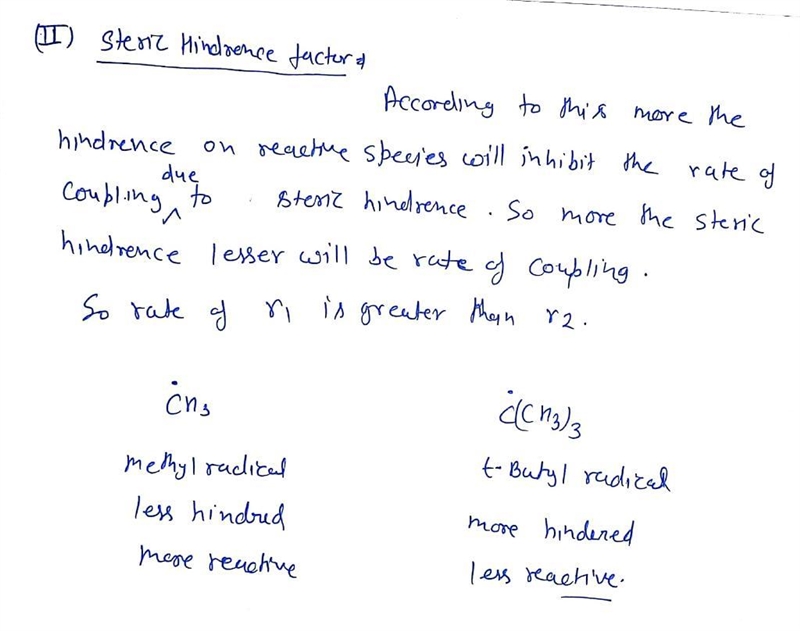 (II) Steric Hindrence factor:
According to this more the
hindrence on reactive species will inhibit the rate of
due
Coupling ^ to steric hindrence. So more the steric
hindrence lesser will be rate of Coupling.
So rate of r1 is greater than r2.
ĊH3 Ċ(CH3)3
methyl radical t-Butyl radical
less hindred more hindered
more reactive less reactive.